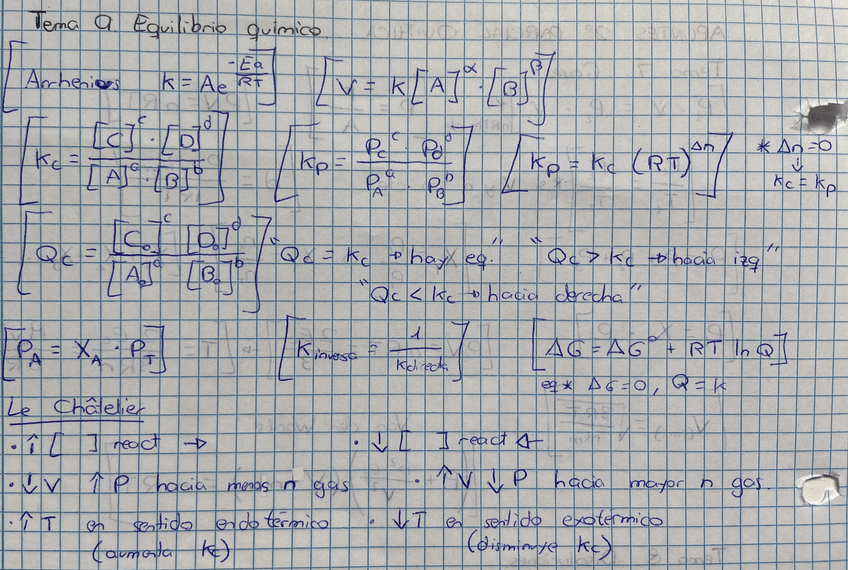 Tema 9. Equilibrio químico
[Arrhenius k = Ae^(-Ea/RT)] [V = K[A]^α · [B]^β]
[Kc = [C]^c · [D]^d / [A]^a · [B]^b] [Kp = Pc^c · Pd^d / PA^a · PB^b] [Kp = Kc (RT)^Δn] * Δn = 0
↓
Kc = Kp
[Qc = [C₀]^c [D₀]^d / [A₀]^a [B₀]^b] "Qc = Kc → hay eq." "Qc > Kc → hacia izq"
"Qc < Kc → hacia derecha"
[PA = XA · PT] [Kinversa = 1 / Kdirecta] [ΔG = ΔG° + RT ln Q]
eq* ΔG = 0, Q = K
Le Châtelier
· ↑ [ ] react → · ↓ [ ] react ←
· ↓ V ↑ P hacia menos n gas · ↑ V ↓ P hacia mayor n gas.
· ↑ T en sentido endotérmico · ↓ T en sentido exotérmico
(aumenta Kc) (disminuye Kc)